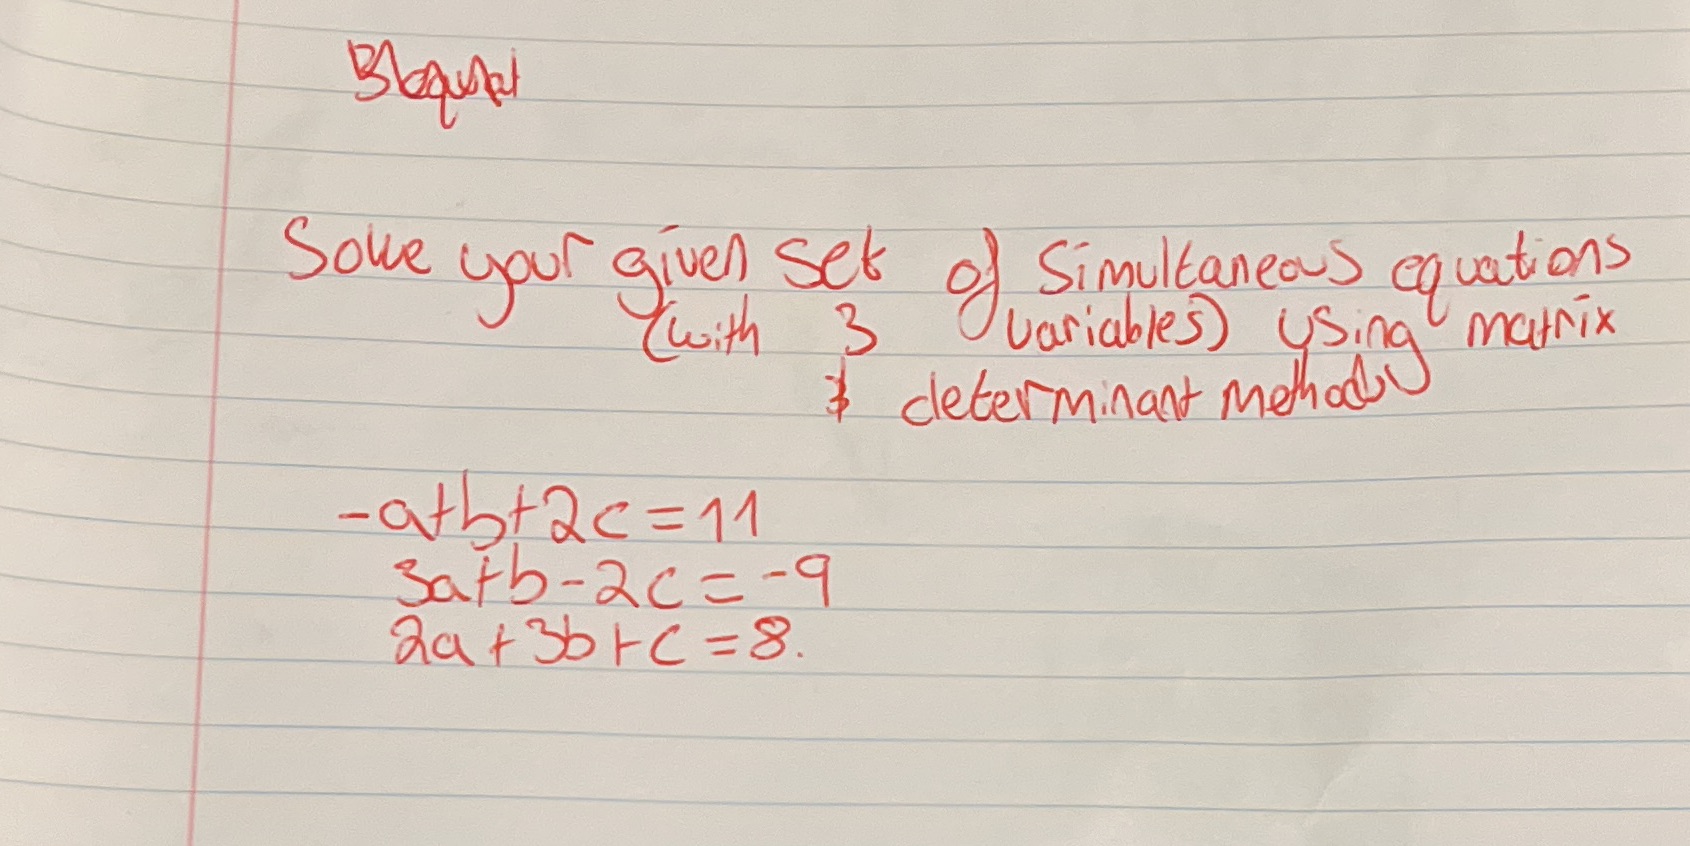 Solve your given set of simultaneous equations
(with 3 variables) using matrix
& determinant methods
-a+b+2c=11
3a+b-2c=-9
2a+3b+c=8.